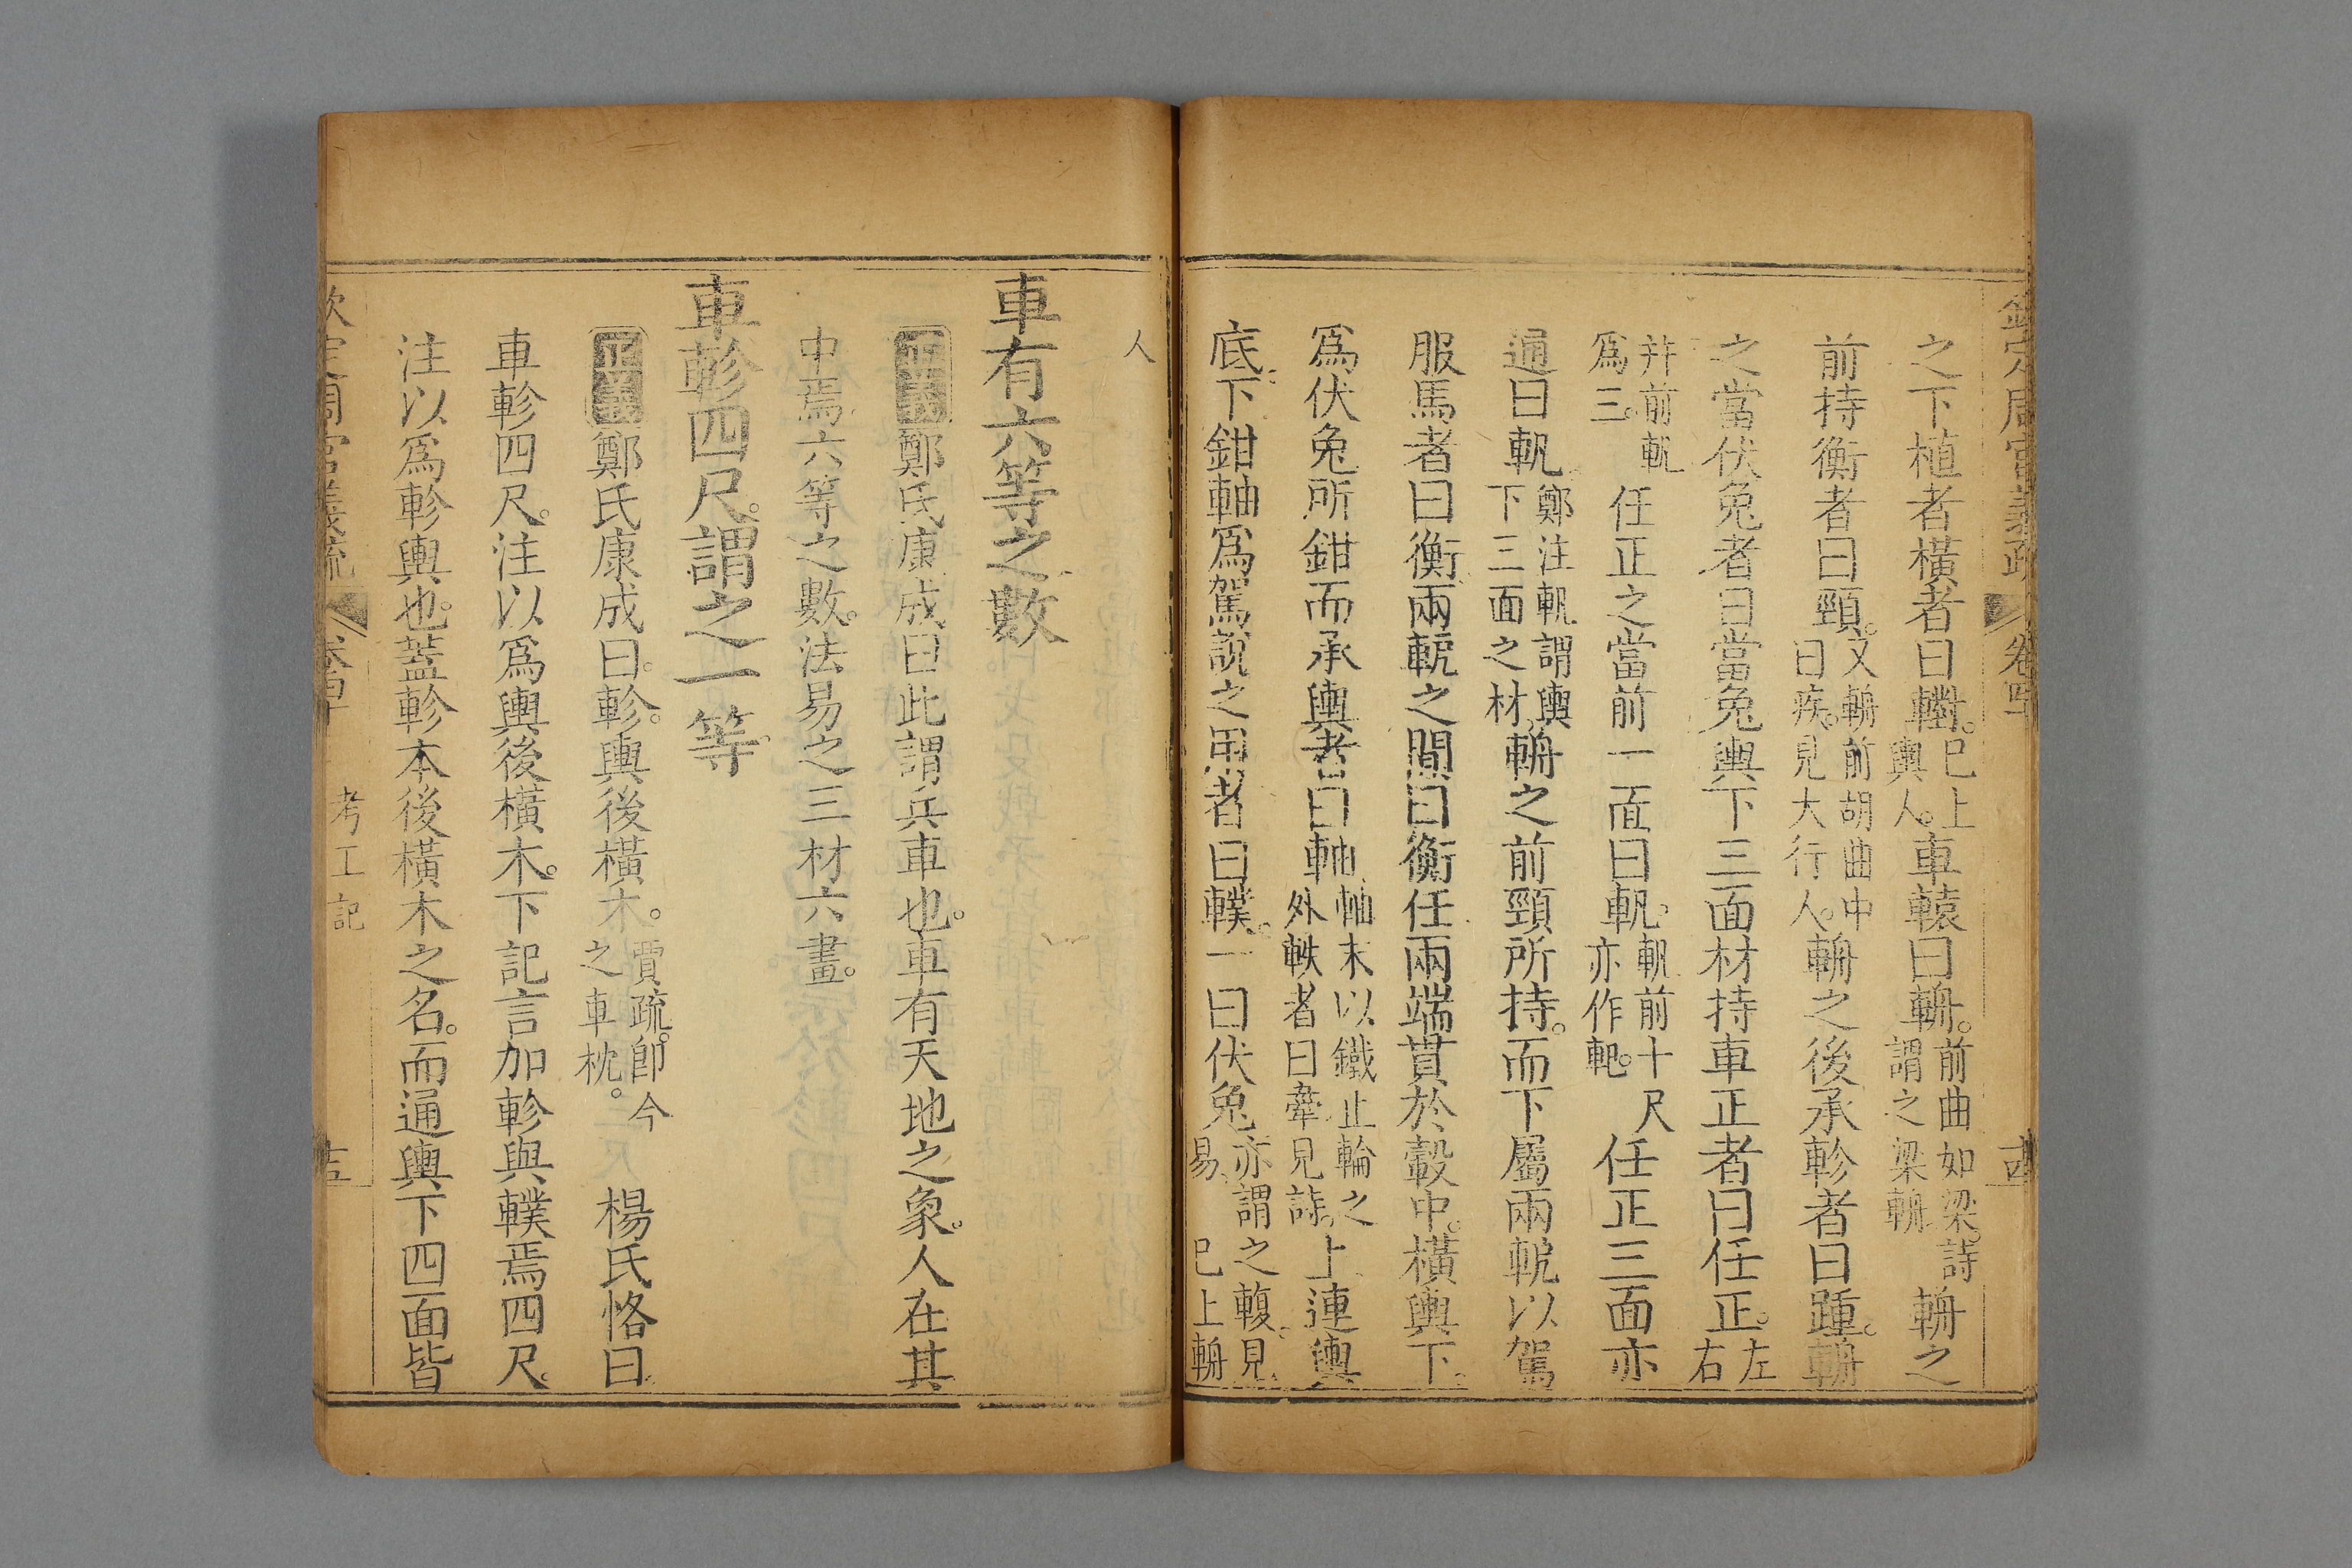 欽定周官義疏 卷四十
之下植者橫者曰轛巳上輿人車轅曰輈前曲如梁詩謂之梁輈輈之
前持衡者曰頸又輈前胡曲中曰疾見大行人輈之後承軫者曰踵輈
之當伏兔者曰當兔輿下三面材持車正者曰任正左右
并前軓爲三任正之當前一面曰軓軓前十尺亦作軓任正三面亦
通曰軓鄭注軓謂輿下三面之材輈之前頸所持而下屬兩軶以駕
服馬者曰衡兩軶之間曰衡任兩端貫於轂中橫輿下
爲伏兔所鉗而承輿者曰軸軸末以鐵止輪之外軼者曰舝見詩上連輿
底下鉗軸爲駕說之用者曰轐一曰伏兔亦謂之輹見易巳上輈
人
車有六等之數
正義鄭氏康成曰此謂兵車也車有天地之象人在其
中焉六等之數法易之三材六畫
車軫四尺謂之一等
正義鄭氏康成曰軫輿後橫木賈疏卽今之車枕 楊氏恪曰
車軫四尺注以爲輿後橫木下記言加軫與轐焉四尺
注以爲軫輿也蓋軫本後橫木之名而通輿下四面皆
欽定周官義疏 卷四十 考工記